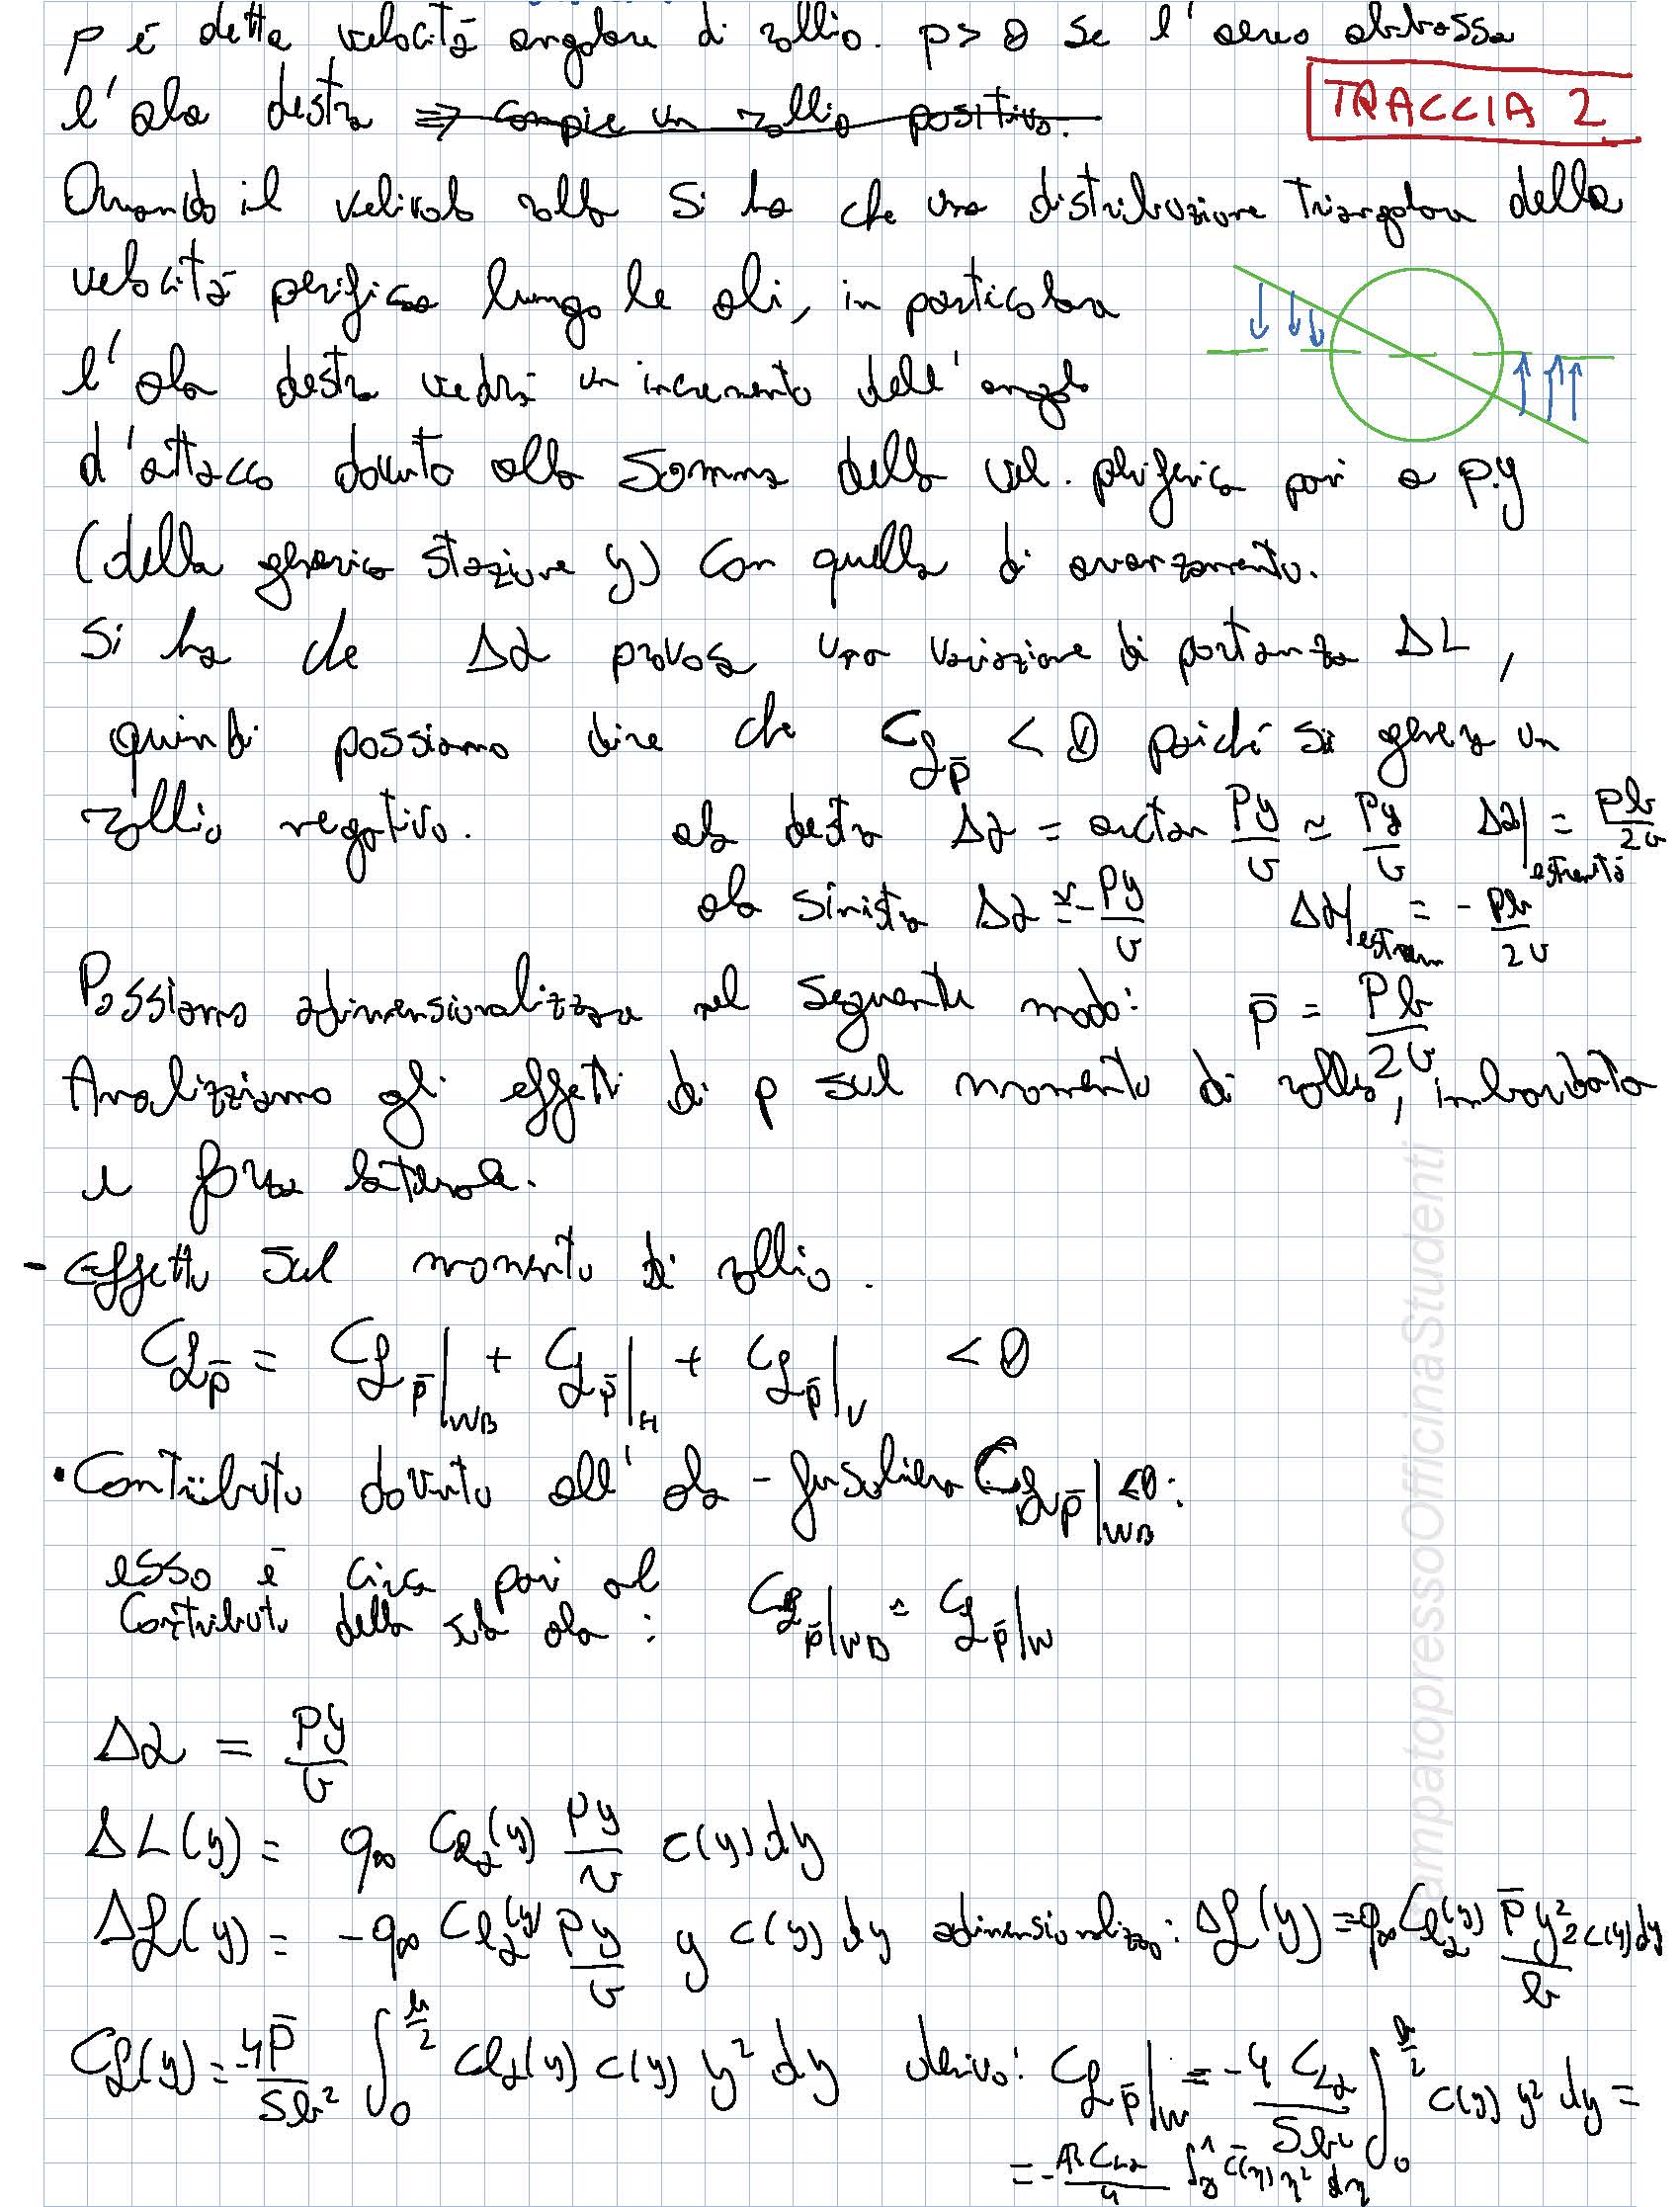 p è detta velocità angolare di rollio. p > 0 se l'aereo abbassa
l'ala destra ⇒ compie un rollio positivo.
TRACCIA 2
Quando il velivolo rolla si ha che una distribuzione triangolare della
velocità periferica lungo le ali, in particolare
l'ala destra vedrà un incremento dell'angolo
d'attacco dovuto alla somma della vel. periferica pari a p.y
(della generica stazione y) con quella di avanzamento.
Si ha che Δα provoca una variazione di portanza ΔL,
quindi possiamo dire che Cℒp̄ < 0 poiché si genera un
rollio negativo.
ala destra Δα = arctan py/v ≃ py/v Δα|estremità = pb/2v
ala sinistra Δα ≃ -py/v Δα|estrem = -pb/2v
Possiamo adimensionalizzare nel seguente modo: p̄ = pb/2v
Analizziamo gli effetti di p sul momento di rollio, imbardata
e forza laterale.
- Effetto sul momento di rollio.
Cℒp̄ = Cℒp̄|WB + Cℒp̄|H + Cℒp̄|V < 0
• Contributo dovuto all'ala - fusoliera Cℒp̄|WB <0:
esso è circa pari al
contributo della sola ala : Cℒp̄|WB ≃ Cℒp̄|W
Δα = py/v
ΔL(y) = q∞ Clα(y) py/v c(y) dy
Δℒ(y) = -q∞ Clα(y) py/v y c(y) dy adimensionalizzo: Δℒ(y) = q∞ Clα(y) p̄y²/b 2 c(y) dy
Cℒ(y) = -4p̄/Sb² ∫₀^(b/2) Clα(y) c(y) y² dy derivo: Cℒp̄|W = -4 CLα/Sb² ∫₀^(b/2) c(y) y² dy =
= -AR CLα/4 ∫₀¹ c̄(η) η² dη
StampatopressoOfficinaStudenti